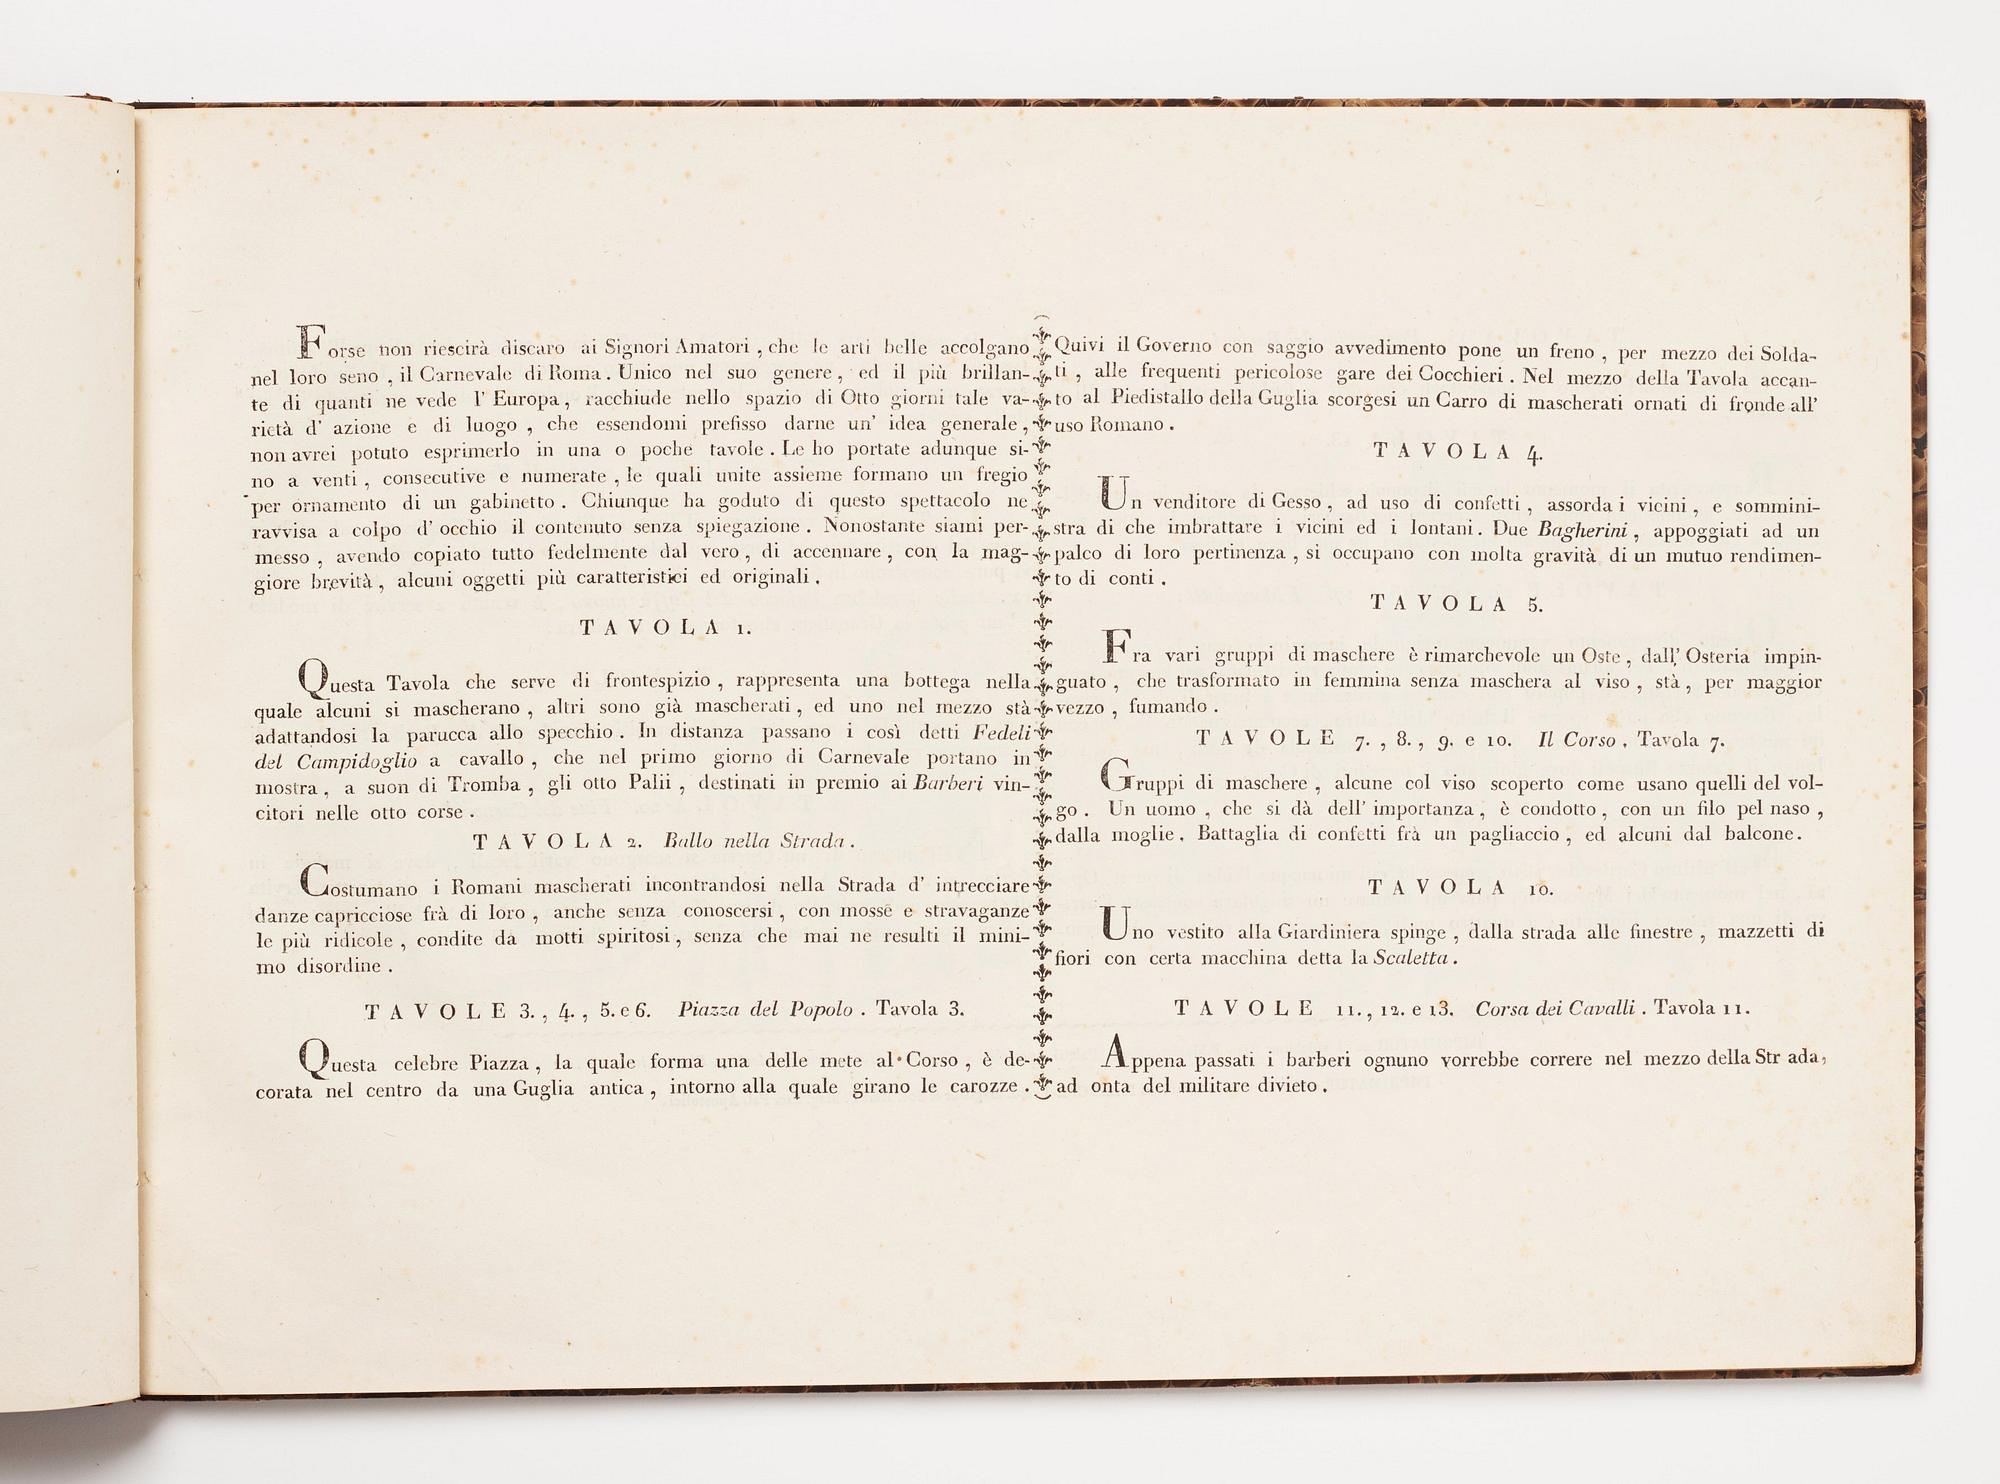 Forse non riescirà discaro ai Signori Amatori, che le arti belle accolgano
nel loro seno, il Carnevale di Roma. Unico nel suo genere, ed il più brillan-
te di quanti ne vede l'Europa, racchiude nello spazio di Otto giorni tale va-
rietà d'azione e di luogo, che essendomi prefisso darne un'idea generale,
non avrei potuto esprimerlo in una o poche tavole. Le ho portate adunque si-
no a venti, consecutive e numerate, le quali unite assieme formano un fregio
per ornamento di un gabinetto. Chiunque ha goduto di questo spettacolo ne
ravvisa a colpo d'occhio il contenuto senza spiegazione. Nonostante siami per-
messo, avendo copiato tutto fedelmente dal vero, di accennare, con la mag-
giore brevità, alcuni oggetti più caratteristici ed originali.
TAVOLA 1.
Questa Tavola che serve di frontespizio, rappresenta una bottega nella
quale alcuni si mascherano, altri sono già mascherati, ed uno nel mezzo stà
adattandosi la parucca allo specchio. In distanza passano i così detti Fedeli
del Campidoglio a cavallo, che nel primo giorno di Carnevale portano in
mostra, a suon di Tromba, gli otto Palii, destinati in premio ai Barberi vin-
citori nelle otto corse.
TAVOLA 2. Ballo nella Strada.
Costumano i Romani mascherati incontrandosi nella Strada d'intrecciare
danze capricciose frà di loro, anche senza conoscersi, con mosse e stravaganze
le più ridicole, condite da motti spiritosi, senza che mai ne resulti il mini-
mo disordine.
TAVOLE 3., 4., 5. e 6. Piazza del Popolo. Tavola 3.
Questa celebre Piazza, la quale forma una delle mete al Corso, è de-
corata nel centro da una Guglia antica, intorno alla quale girano le carozze.
Quivi il Governo con saggio avvedimento pone un freno, per mezzo dei Solda-
ti, alle frequenti pericolose gare dei Cocchieri. Nel mezzo della Tavola accan-
to al Piedistallo della Guglia scorgesi un Carro di mascherati ornati di fronde all'
uso Romano.
TAVOLA 4.
Un venditore di Gesso, ad uso di confetti, assorda i vicini, e sommini-
stra di che imbrattare i vicini ed i lontani. Due Bagherini, appoggiati ad un
palco di loro pertinenza, si occupano con molta gravità di un mutuo rendimen-
to di conti.
TAVOLA 5.
Fra vari gruppi di maschere è rimarchevole un Oste, dall'Osteria impin-
guato, che trasformato in femmina senza maschera al viso, stà, per maggior
vezzo, fumando.
TAVOLE 7., 8., 9. e 10. Il Corso. Tavola 7.
Gruppi di maschere, alcune col viso scoperto come usano quelli del vol-
go. Un uomo, che si dà dell'importanza, è condotto, con un filo pel naso,
dalla moglie. Battaglia di confetti frà un pagliaccio, ed alcuni dal balcone.
TAVOLA 10.
Uno vestito alla Giardiniera spinge, dalla strada alle finestre, mazzetti di
fiori con certa macchina detta la Scaletta.
TAVOLE 11., 12. e 13. Corsa dei Cavalli. Tavola 11.
Appena passati i barberi ognuno vorrebbe correre nel mezzo della Str ada,
ad onta del militare divieto.